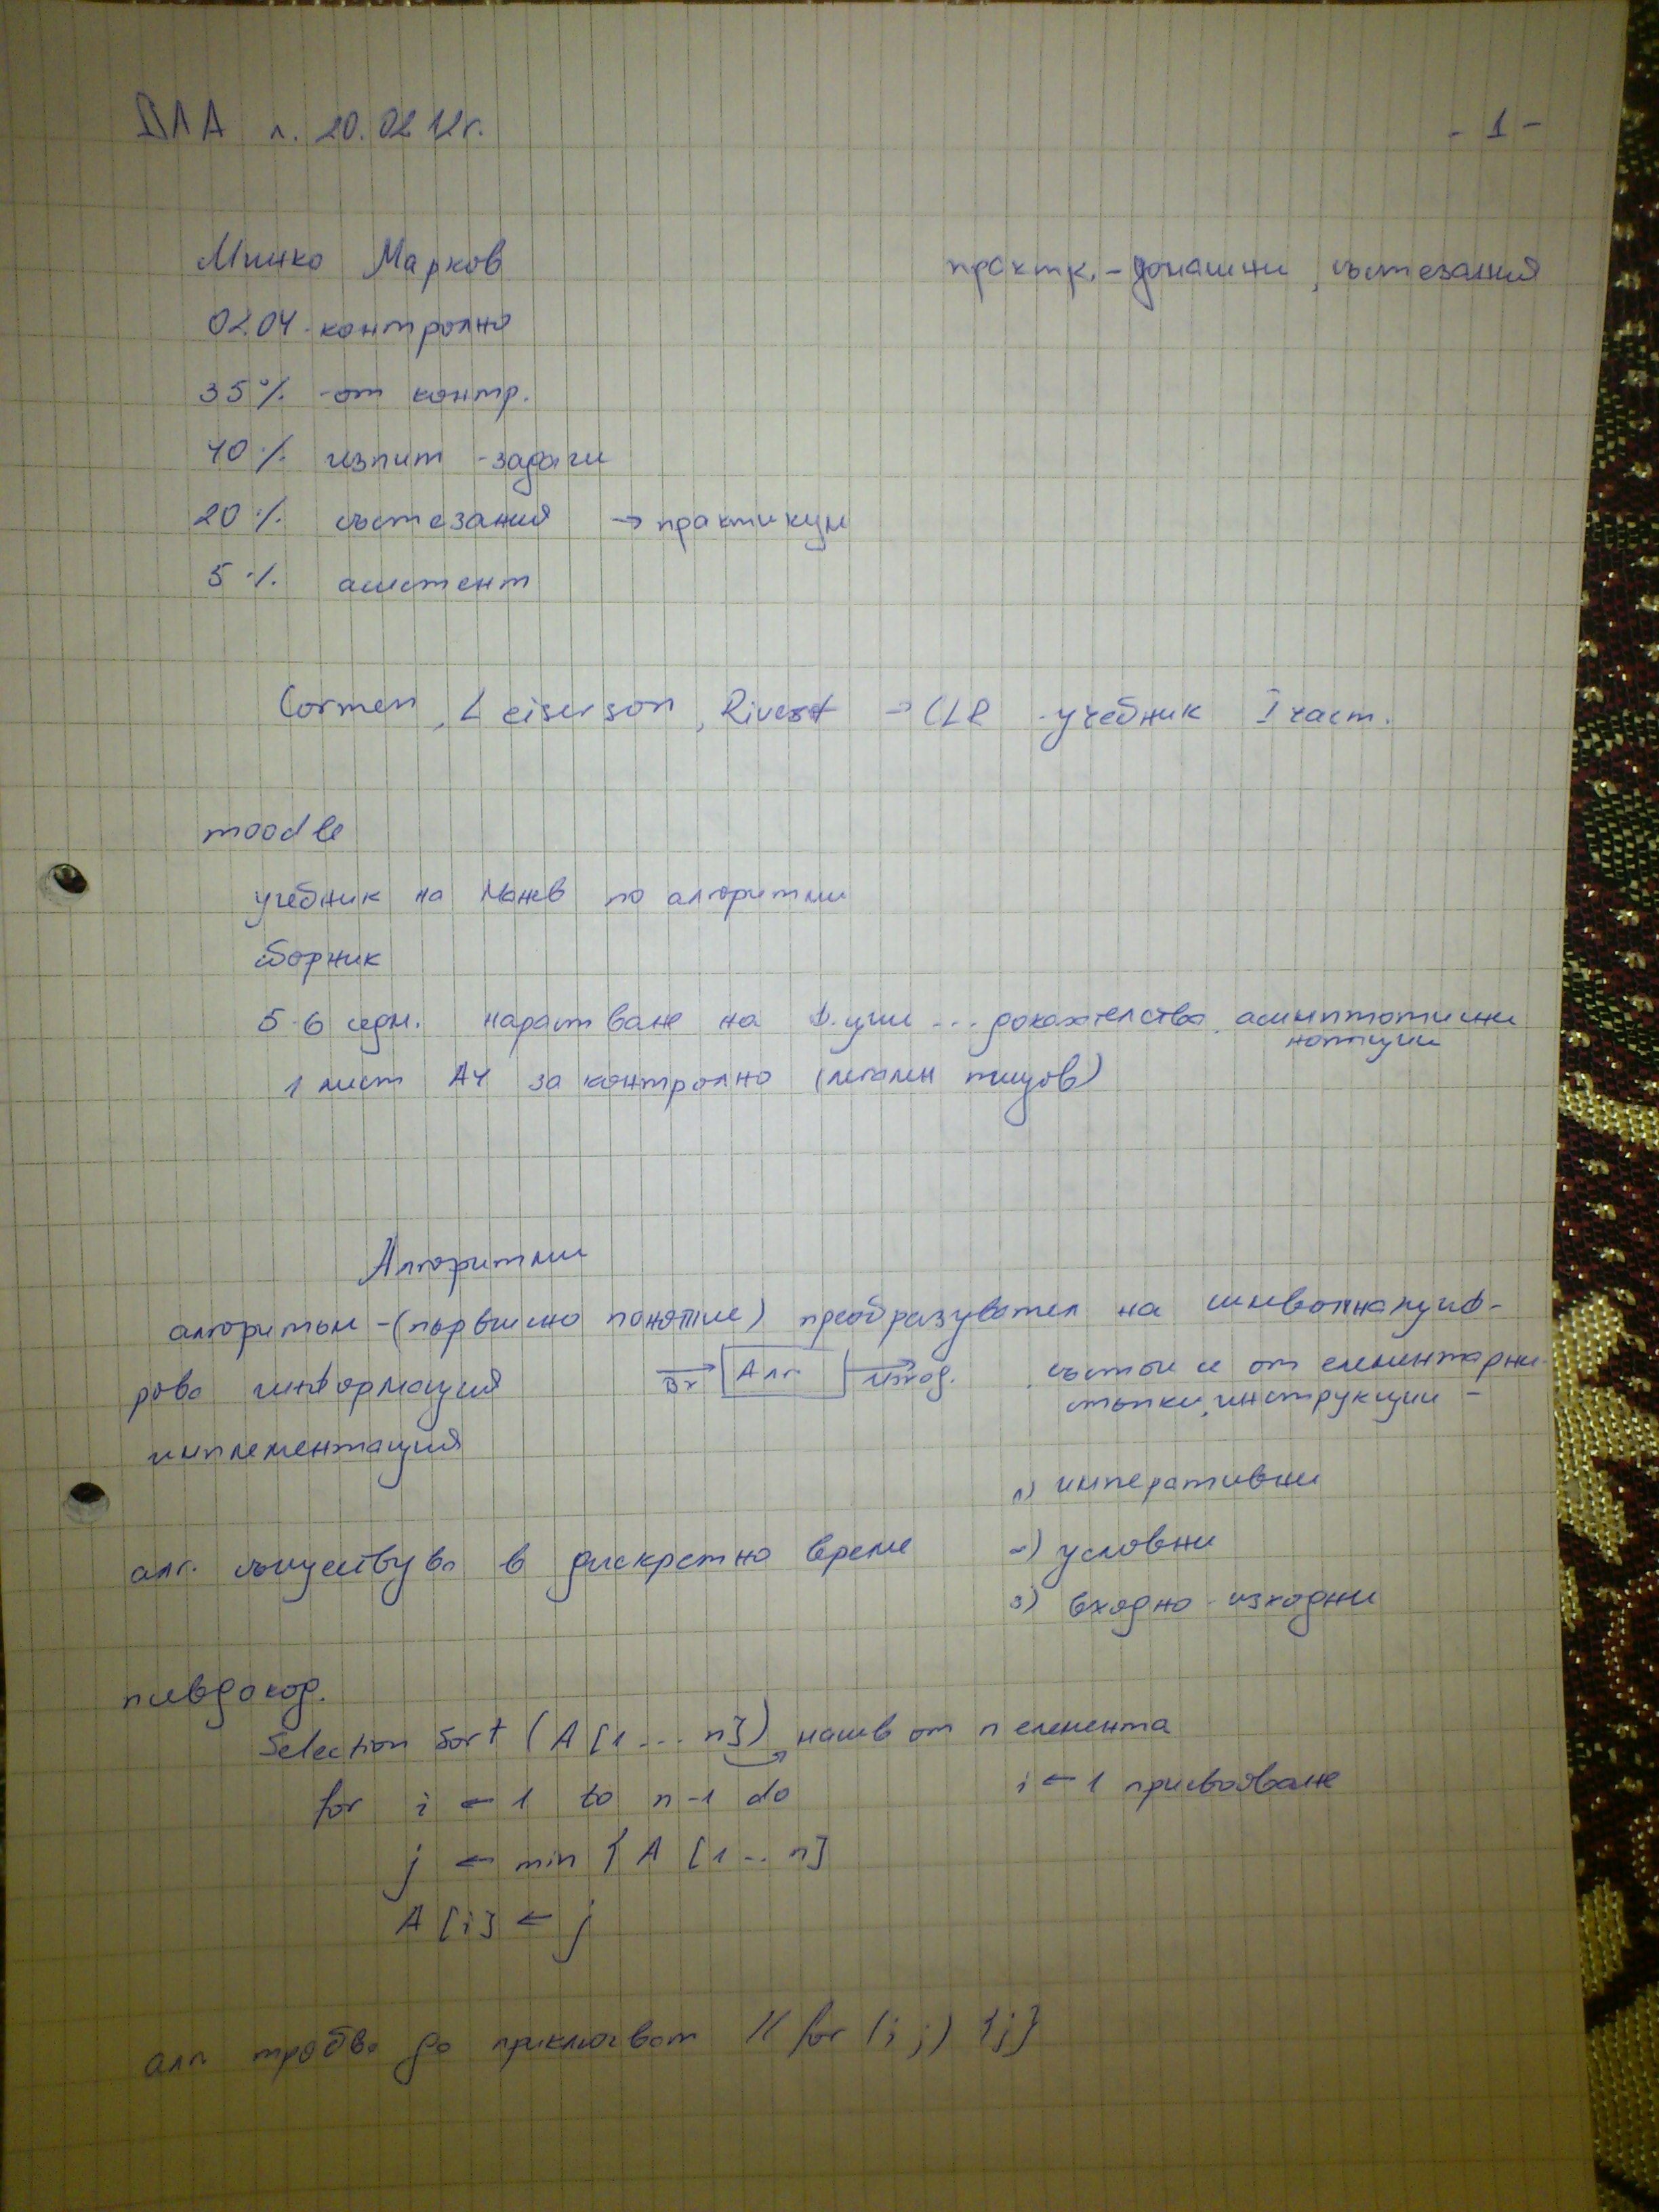 ДАА л. 20.02 12г.
- 1 -
Минко Марков
практ. - домашни, състезания
02.04 - контролно
35% - от контр.
40% изпит - задачи
20% състезания → практикум
5% асистент
Cormen, Leiserson, Rivest → CLR - учебник I част.
moodle
учебник на Манев по алгоритми
сборник
5-6 седм. нарастване на ф.ции ... доказателства, асимптотични
нотации
1 лист А4 за контролно (легален пищов)
Алгоритми
алгоритъм - (първично понятие) преобразувател на символна, циф-
рова информация
Вх → Алг. → Изход.
състои се от елементарни
стъпки, инструкции -
имплементация
1) императивни
алг. съществува в дискретно време
2) условни
3) входно - изходни
псевдокод.
Selection Sort (A [1 ... n]) масив от n елемента
for i ← 1 to n-1 do
i ← 1 присвояване
j ← min { A [1 .. n]
A [i] ← j
алг трябва да приключват // for (; ;) {;}